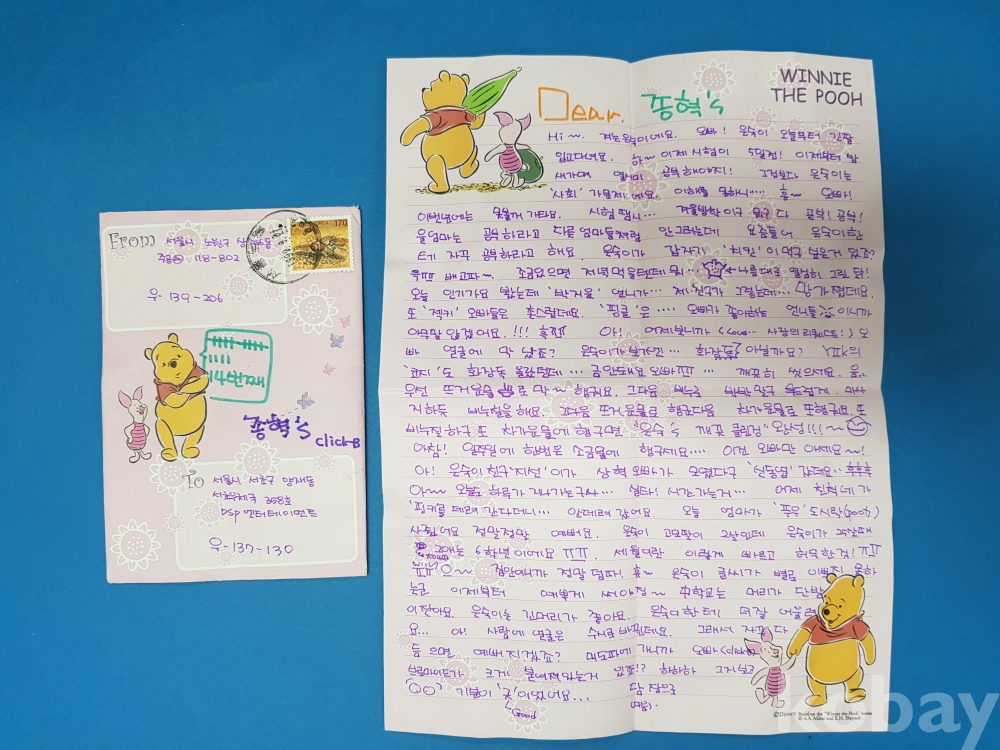 From 서울시 노원구 상계6동
주공 118-802
우-139-206
170
14번째
종혁's
click-B
To 서울시 서초구 양재동
서초우체국 358호
DSP 엔터테이먼트
우-137-130
WINNIE
THE POOH
Dear. 종혁's
Hi~. 저는 은숙이에요. 오빠! 은숙이 오늘부터 긴팔
입고다녀요. 하~ 이제 시험이 5일전! 이제부터 밤
새가며 열시미 공부해야지! 그것보다 은숙이는
'사회'가 문제에요. 이해를 못하니.... 흠~ 오빠!
이번년에는 못볼꺼 가타요. 시험 땜시... 겨울방학이구 모구 다 공부! 공부!
울엄마는 공부하라고 다른 엄마들처럼 안그러는데 요즘들어 은숙이한
테 자꾸 공부하라고 해요. 은숙이가 갑자기 '치킨'이 먹구 싶은거 있죠?
흑ㅠㅠ 배고파~. 조금있으면 저녁먹을텐데 뭐... ←나름대로 열심히 그린 닭!
오늘 인기가요 봤는데 언니가... 제 친구가 그러는데... 망가졌데요.
또 '젝키' 오빠들은 촌스럽데요. '핑클'은..... 오빠가 좋아하는 언니들이니까
아무말 않겠어요.!!! 흑ㅠㅠ 아! 어제보니까 (Love... 사랑의리퀘스트!) 오
빠 얼굴에 막 났죠? 은숙이가 보기엔... 화장독 아닐까요? Y2k의
'코지'도 화장독 올랐던데... 그럼안돼요 오빠ㅠㅠ... 깨끗히 씻으세요. 음..
우선 뜨거운물로 막~ 헹궈요. 그다음 비누
비누칠을 해요. 그다음 뜨거운물로 헹군다음 차가운물로 또헹궈요. 또
비누칠 하구 또 차가운물에 헹구면 "은숙's 깨끗 클린징" 완성!!!~
아참! 일주일에 한번은 소금물에 헹구세요.... 이건 오빠만 아세요~!
아! 은숙이친구 '지선'이가 상혁오빠가 모였다구 '신동엽' 같데요.. 후후훅
아~ 오늘도 하루가 지나가는구나... 싫타! 시간가는거... 어제 친척네가
데려 간다더니... 안데려 갔어요. 오늘 엄마가 '푸우' 도시락(pooh)
사줬어요 정말정말 예뻐요. 은숙이 고모딸이 2살인데 은숙이가 25살때
그애는 6학년이에요 ㅠㅠ. 세월이란 이렇게 빠르고 허무한 것! ㅠㅠ
ㅠㅠ 으~ 정말 흠~ 은숙이 글씨가 별로 이쁘질 못하
는군 이제부터 예쁘게 써야징~ 中학교는 머리가 단발
이잖아요. 은숙이는 긴머리가 좋아요. 은숙이한테 더잘 어울려
요... 아! 사람에 얼굴은 수시로 바뀐데요. 그래서 자꾸 다
듬으면 예뻐지겠죠? 미도파에 가니까 오빠(click-B)
브로마이드가 크게 붙여져있는거 있죠!? 하하하 그거보고
기분이 '굿'이였어요... 담 장으로
Good
©DISNEY Based on the "Winnie the Pooh" works
© A.A. Milne and E.H. Shepard
kobay